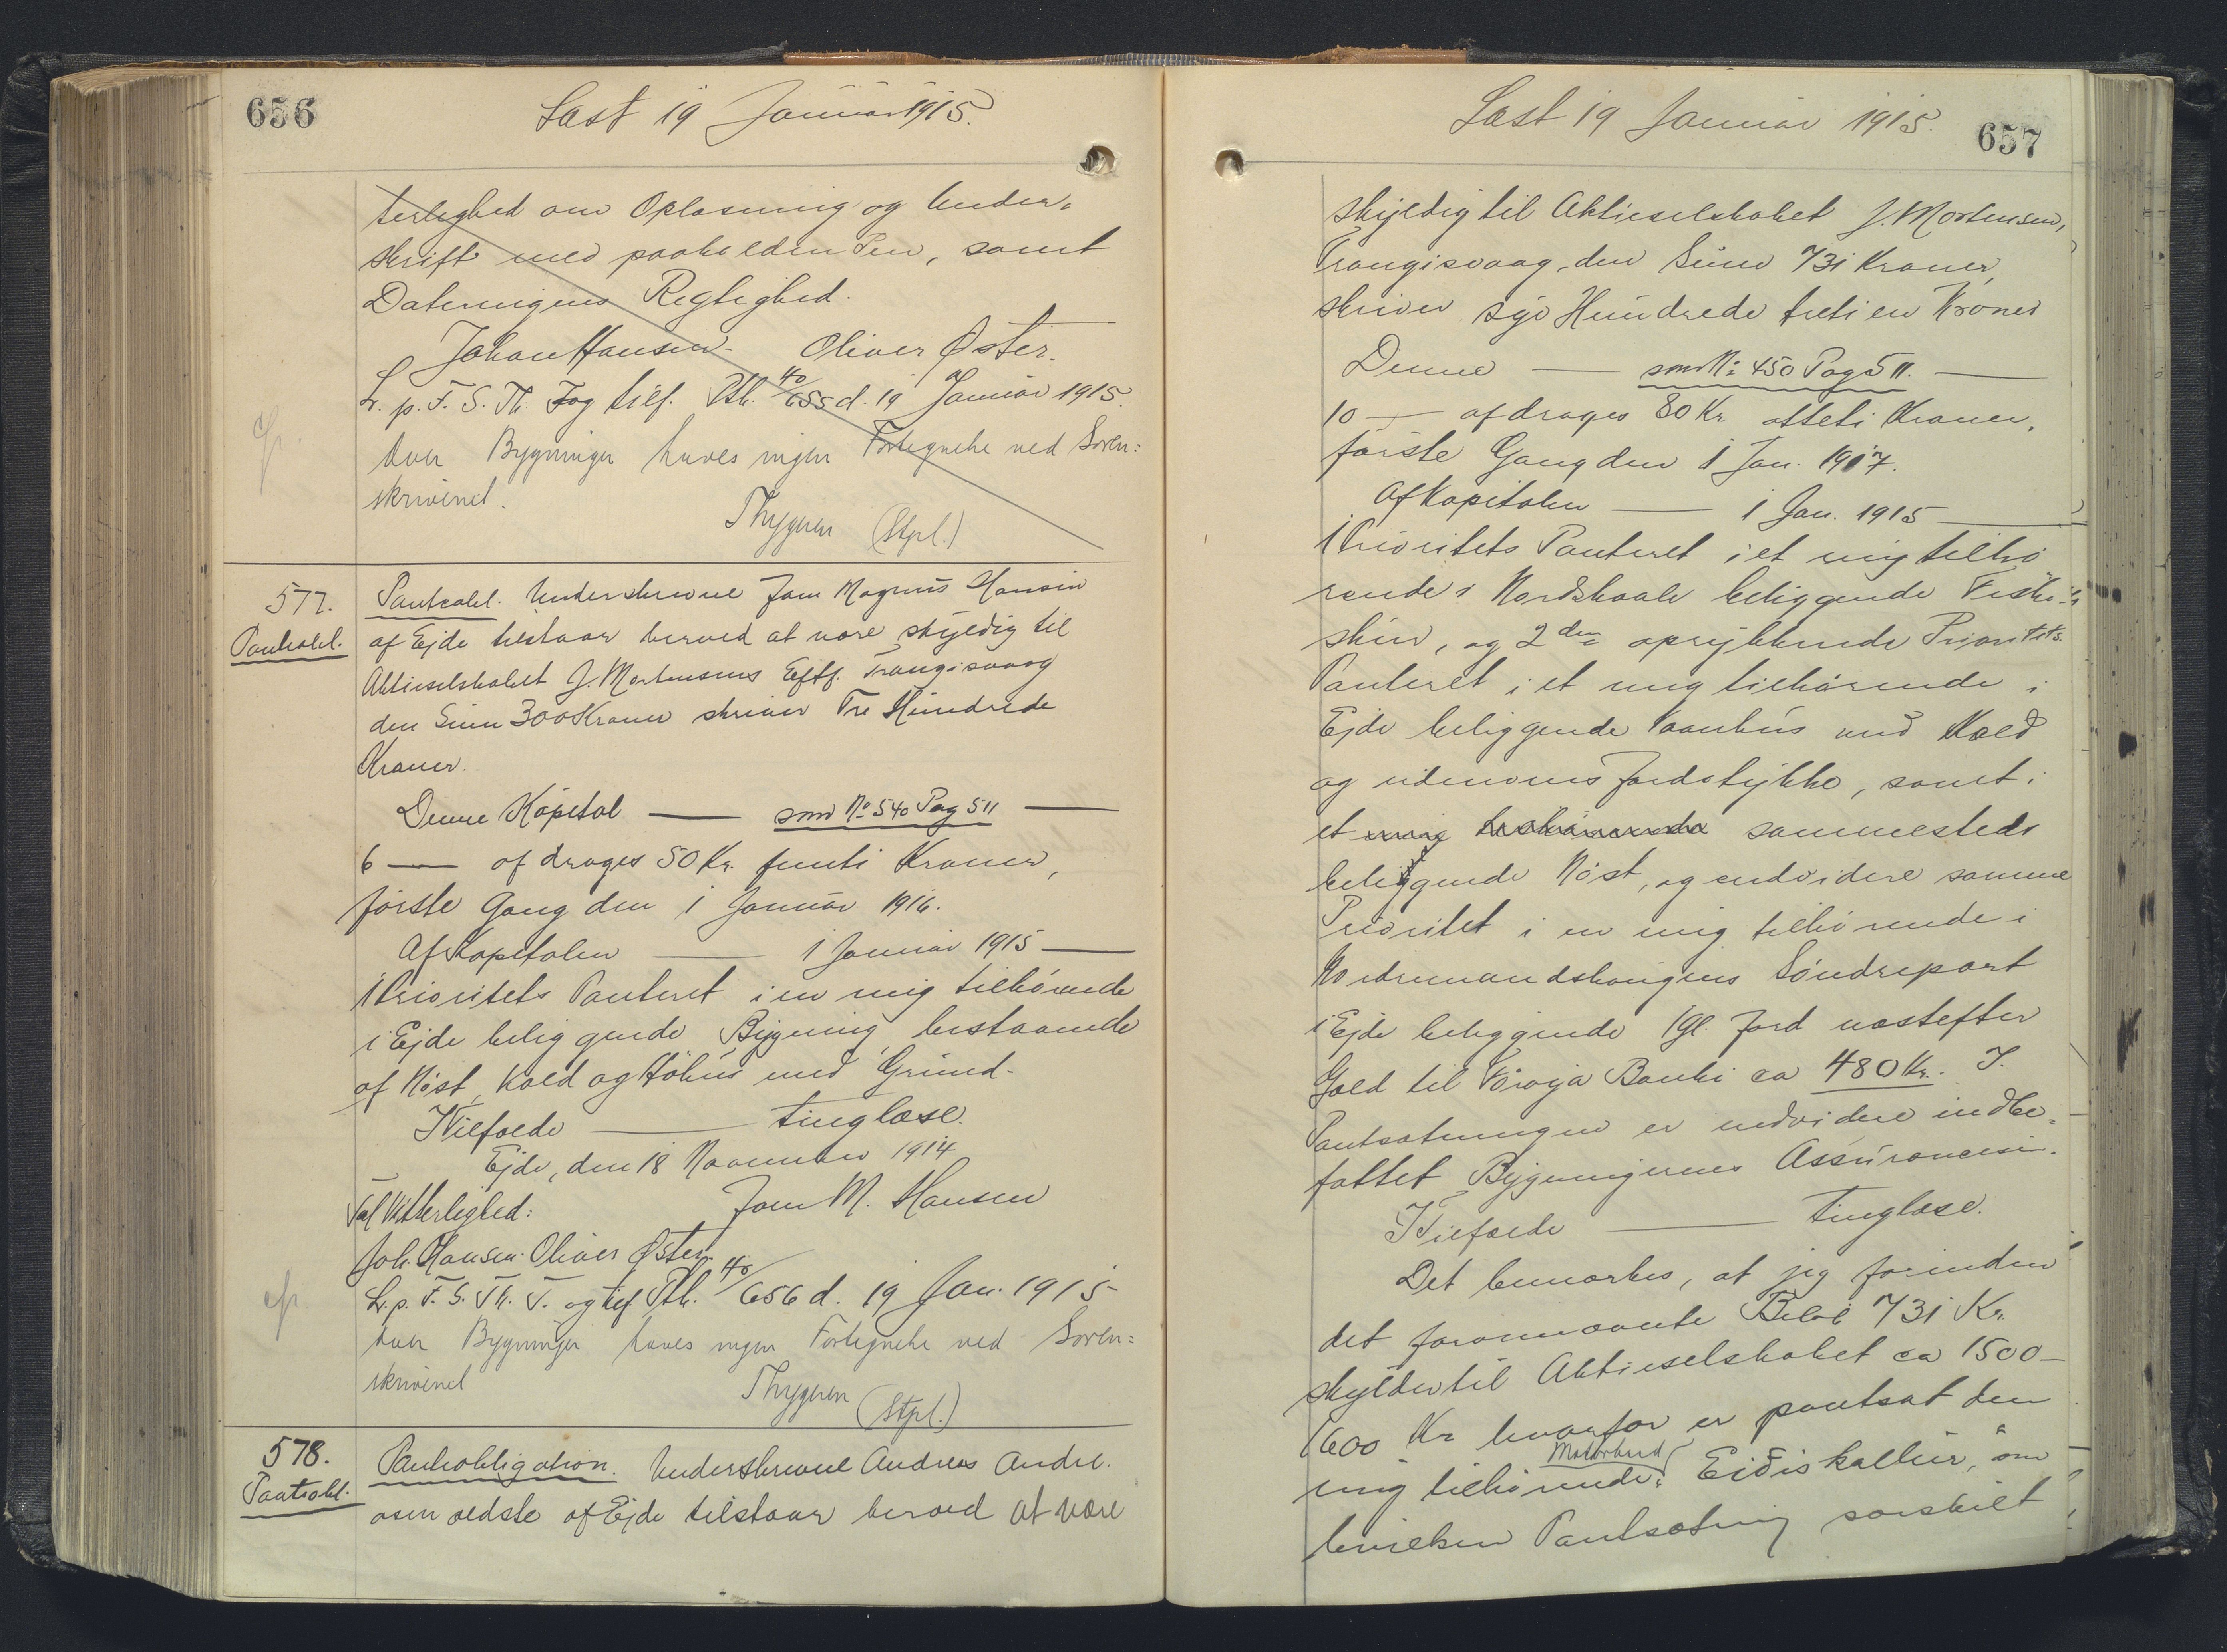 656
Læst 19 Januar 1915.
terlighed om Oplæsning og Under-
skrift med paaholden Pen, samt
Dateringens Rigtighed.
Johan Hansen. Oliver Øster.
L. p. F. S. Th. J og tilf. Pth. 40/655 d. 19 Januar 1915.
over Bygninger haves ingen Fortegnelse ved Soren-
skriveriet.
Thygesen (Stpl.)
577.
Pantobl.
Pantobl. Underskrevne Joen Magnus Hansen
af Ejde tilstaar herved at være skyldig til
Aktieselskabet J. Mortensens Eftf. Trangisvaag
den Sum 300 Kroner skriver Tre Hundrede
Kroner.
Denne Kapital — som No 540 Pag 511 —
6 — afdrages 50 Kr. femti Kroner,
første Gang den 1 Januar 1916.
Af Kapitalen — 1 Januar 1915 —
1 Prioritets Panteret i en mig tilhørende
i Ejde beliggende Bygning, bestaaende
af Nøst, Kæld og Høhus med Grund.
I Tilfælde — tinglæse.
Ejde, den 18 November 1914
Joen M. Hansen
Til Vitterlighed:
Joh. Hansen. Oliver Øster.
L. p. F. S. Th. J. og tilf Pth. 40/656 d. 19 Jan. 1915
over Bygninger haves ingen Fortegnelse ved Soren-
skriveriet
Thygesen (Stpl.)
578.
Pantobl.
Pantobligation. Underskrevne Andreas Andre-
asen ældste af Ejde tilstaar herved at være
657
Læst 19 Januar 1915.
skyldig til Aktieselskabet J. Mortensen,
Trangisvaag, den Sum 731 Kroner,
skriver syv Hundrede treti en Kroner
Denne — som No 450 Pag 511. —
10 — afdrages 80 Kr. otteti Kroner,
første Gang den 1 Jan. 1917.
Af Kapitalen — 1 Jan. 1915 —
1 Prioritets Panteret i et mig tilhø
rende i Nordskaale beliggende Fiske-
skur, og 2den oprykkende Prioritets
Panteret i et mig tilhørende i
Ejde beliggende Vaanhus med Kæld
og udenoms Jordstykke, samt i
et mig tilhørende sammesteds
beliggende Nøst, og endvidere samme
Prioritet i en mig tilhørende i
Nordremandshaugens Søndrepart
i Ejde beliggende 1 Gl. Jord næstefter
Gæld til Føroya Banki ca 480 Kr. I
Pantsætningen er endvidere indbe-
fattet Bygningernes Assurancesum.
I Tilfælde — tinglæse.
Det bemærkes, at jeg forinden
det forannævnte Beløb 731 Kr.
skylder til Aktieselskabet ca 1500-
1600 Kr hvorfor er pantsat den
mig tilhørende Motorbaad Eiðiskallur, om
hvilken Pantsætning særskilt